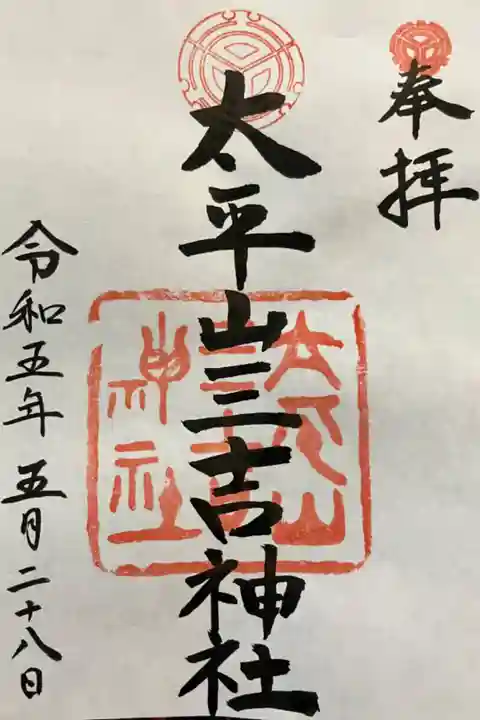 奉拝
太平山三吉神社
太平山三吉神社
令和五年 五月二十八日